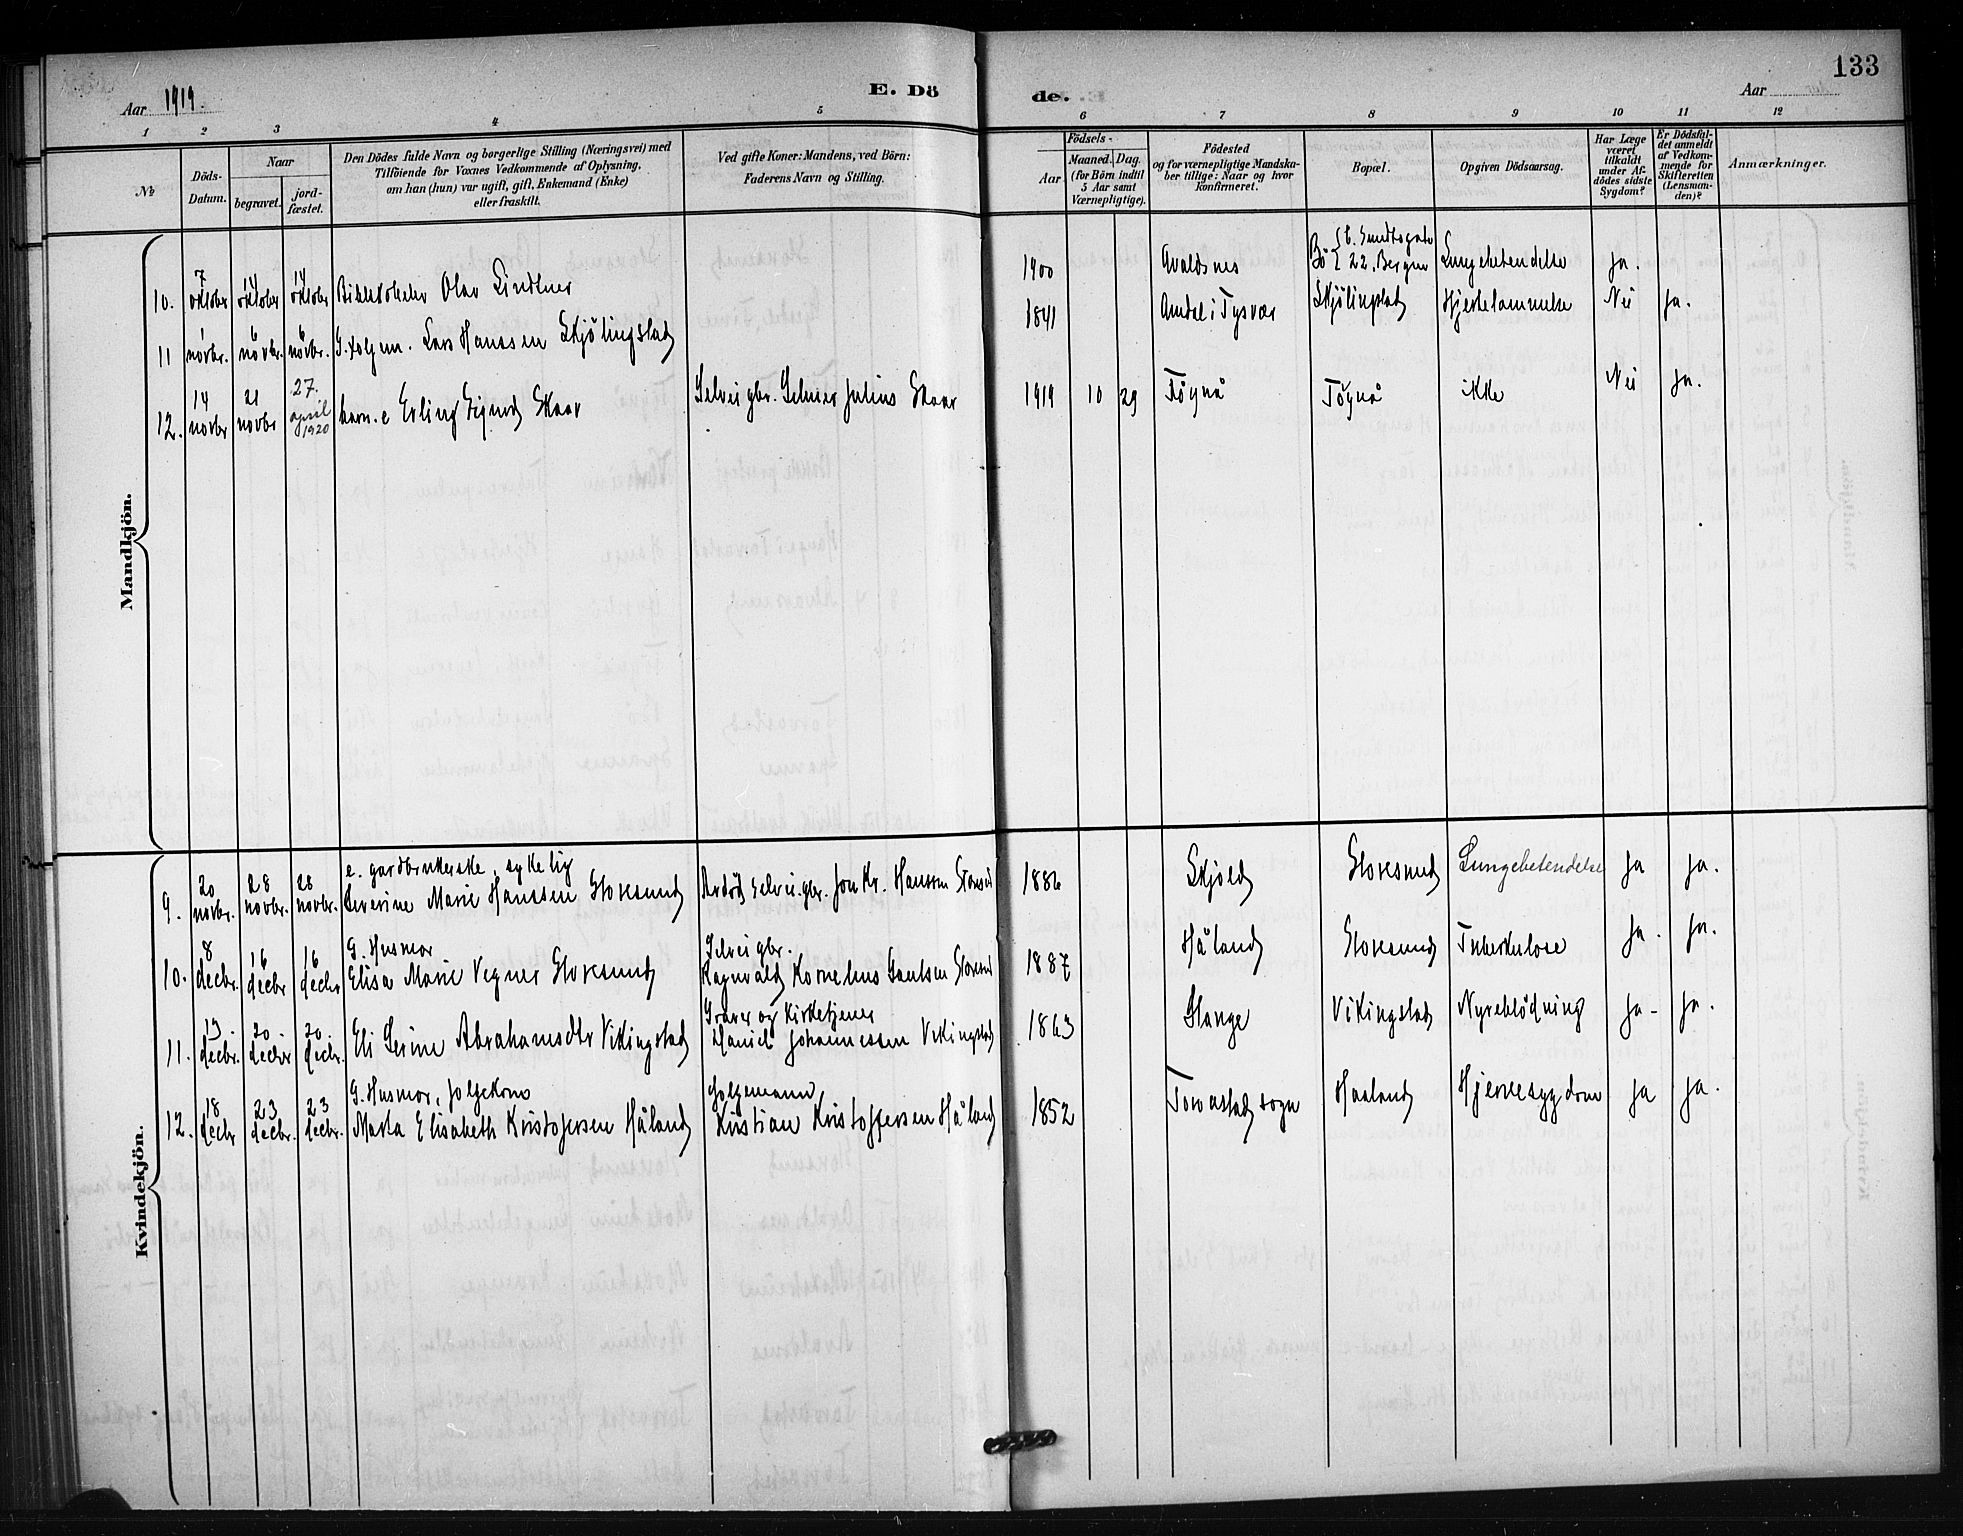 133
Aar 1919. E. Dö de. Aar
1 2 3 4 5 6 7 8 9 10 11 12
№
Döds-Datum.
Naar
begravet.
jord-fæstet.
Den Dödes fulde Navn og borgerlige Stilling (Næringsvei) med
Tilföiende for Voxnes Vedkommende af Oplysning,
om han (hun) var ugift, gift, Enkemand (Enke)
eller fraskilt.
Ved gifte Koner: Mandens, ved Börn:
Faderens Navn og Stilling.
Födsels-
Aar
Maaned. Dag.
(for Börn indtil
5 Aar samt
Værnepligtige).
Födested
og for værnepligtige Mandska-
ber tillige: Naar og hvor
konfirmeret.
Bopæl.
Opgiven Dödsaarsag.
Har Læge
været
tilkaldt
under Af-
dödes sidste
Sygdom?
Er Dödsfal-
det anmeldt
af Vedkom-
mende for
Skifteretten
(Lensman-
den)?
Anmærkninger.
Mandkjön.
10. 7 oktober 14 oktober 14 oktober Olav Lindtner 1900 Avaldsnes Bö 22, Bergen Lungebetendelse Ja.
11 1 novbr. 6 novbr. 6 novbr. Lars Hanssen Skjölingstad 1841 Amdal i Tysvær Skjölingstad Hjertelammelse Nei Ja.
12. 14 novbr 21 novbr 27. april 1920 Erling Sigurd Skaar Selveigbr. Julius Skaar 1919 10 29 Töynå Töynå ikke Nei Ja.
Kvindekjön.
e. gardbrukerske, sykelig
9. 20 novbr. 28 novbr. 28 novbr. Severine Marie Hanssen Storesund Selveigbr. Jon Kr. Hanssen 1886 Skjold Storesund Lungebetendelse Ja Ja.
G. Husmor Selveigbr.
10. 8 decbr. 16 decbr 16 decbr Elisa Marie Vegner Storesund Ragnvald Kornelius 1887 Håland Storesund Tuberkulose Ja. Ja.
Graver og Kirketjener
11. 13. decbr. 20. decbr 20. decbr. Eli Serine Abrahamsdtr Vikingstad Daniel Johannessen Vikingstad 1863 Stange Vikingstad Nyreblödning Ja- Ja.
G. Husmor, folgekone Folgemann,
12. 18 decbr 23 decbr. 23 decbr. Marta Elisabeth Kristofersen Håland Kristian Kristoffersen Håland 1852 Torvastad sogn Haaland Hjertesygdom Ja Ja.